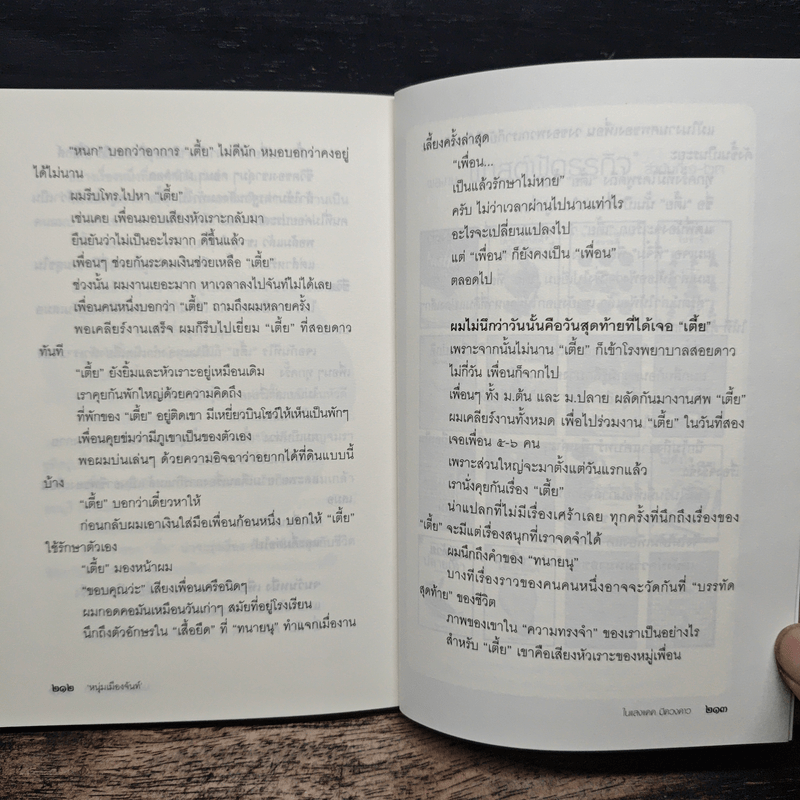 "หนก" บอกว่าอาการ "เตี้ย" ไม่ดีนัก หมอบอกว่าคงอยู่
ได้ไม่นาน
ผมรีบโทร.ไปหา "เตี้ย"
เช่นเคย เพื่อนมอบเสียงหัวเราะกลับมา
ยืนยันว่าไม่เป็นอะไรมาก ดีขึ้นแล้ว
เพื่อนๆ ช่วยกันระดมเงินช่วยเหลือ "เตี้ย"
ช่วงนั้น ผมงานเยอะมาก หาเวลาลงไปจันท์ไม่ได้เลย
เพื่อนคนหนึ่งบอกว่า "เตี้ย" ถามถึงผมหลายครั้ง
พอเคลียร์งานเสร็จ ผมก็รีบไปเยี่ยม "เตี้ย" ที่สอยดาว
ทันที
"เตี้ย" ยังยิ้มและหัวเราะอยู่เหมือนเดิม
เราคุยกันพักใหญ่ด้วยความคิดถึง
ที่พักของ "เตี้ย" อยู่ติดเขา มีเหยี่ยวบินโชว์ให้เห็นเป็นพักๆ
เพื่อนคุยข่มว่ามีภูเขาเป็นของตัวเอง
พอผมบ่นเล่นๆ ด้วยความอิจฉาว่าอยากได้ที่ดินแบบนี้
บ้าง
"เตี้ย" บอกว่าเดี๋ยวหาให้
ก่อนกลับผมเอาเงินใส่มือเพื่อนก้อนหนึ่ง บอกให้ "เตี้ย"
ใช้รักษาตัวเอง
"เตี้ย" มองหน้าผม
"ขอบคุณว่ะ" เสียงเพื่อนเครือนิดๆ
ผมกอดคอมันเหมือนวันเก่าๆ สมัยที่อยู่โรงเรียน
นึกถึงตัวอักษรใน "เสื้อยืด" ที่ "ทนายนุ" ทำแจกเมื่องาน
๒๑๒ 'หนุ่มเมืองจันท์'
เลี้ยงครั้งล่าสุด
"เพื่อน...
เป็นแล้วรักษาไม่หาย"
ครับ ไม่ว่าเวลาผ่านไปนานเท่าไร
อะไรจะเปลี่ยนแปลงไป
แต่ "เพื่อน" ก็ยังคงเป็น "เพื่อน"
ตลอดไป
ผมไม่นึกว่าวันนั้นคือวันสุดท้ายที่ได้เจอ "เตี้ย"
เพราะจากนั้นไม่นาน "เตี้ย" ก็เข้าโรงพยาบาลสอยดาว
ไม่กี่วัน เพื่อนก็จากไป
เพื่อนๆ ทั้ง ม.ต้น และ ม.ปลาย ผลัดกันมางานศพ "เตี้ย"
ผมเคลียร์งานทั้งหมด เพื่อไปร่วมงาน "เตี้ย" ในวันที่สอง
เจอเพื่อน ๕-๖ คน
เพราะส่วนใหญ่จะมาตั้งแต่วันแรกแล้ว
เรานั่งคุยกันเรื่อง "เตี้ย"
น่าแปลกที่ไม่มีเรื่องเศร้าเลย ทุกครั้งที่นึกถึงเรื่องของ
"เตี้ย" จะมีแต่เรื่องสนุกที่เราจดจำได้
ผมนึกถึงคำของ "ทนายนุ"
บางทีเรื่องราวของคนคนหนึ่งอาจจะวัดกันที่ "บรรทัด
สุดท้าย" ของชีวิต
ภาพของเขาใน "ความทรงจำ" ของเราเป็นอย่างไร
สำหรับ "เตี้ย" เขาคือเสียงหัวเราะของหมู่เพื่อน
ในแสงแดด มีดวงดาว ๒๑๓